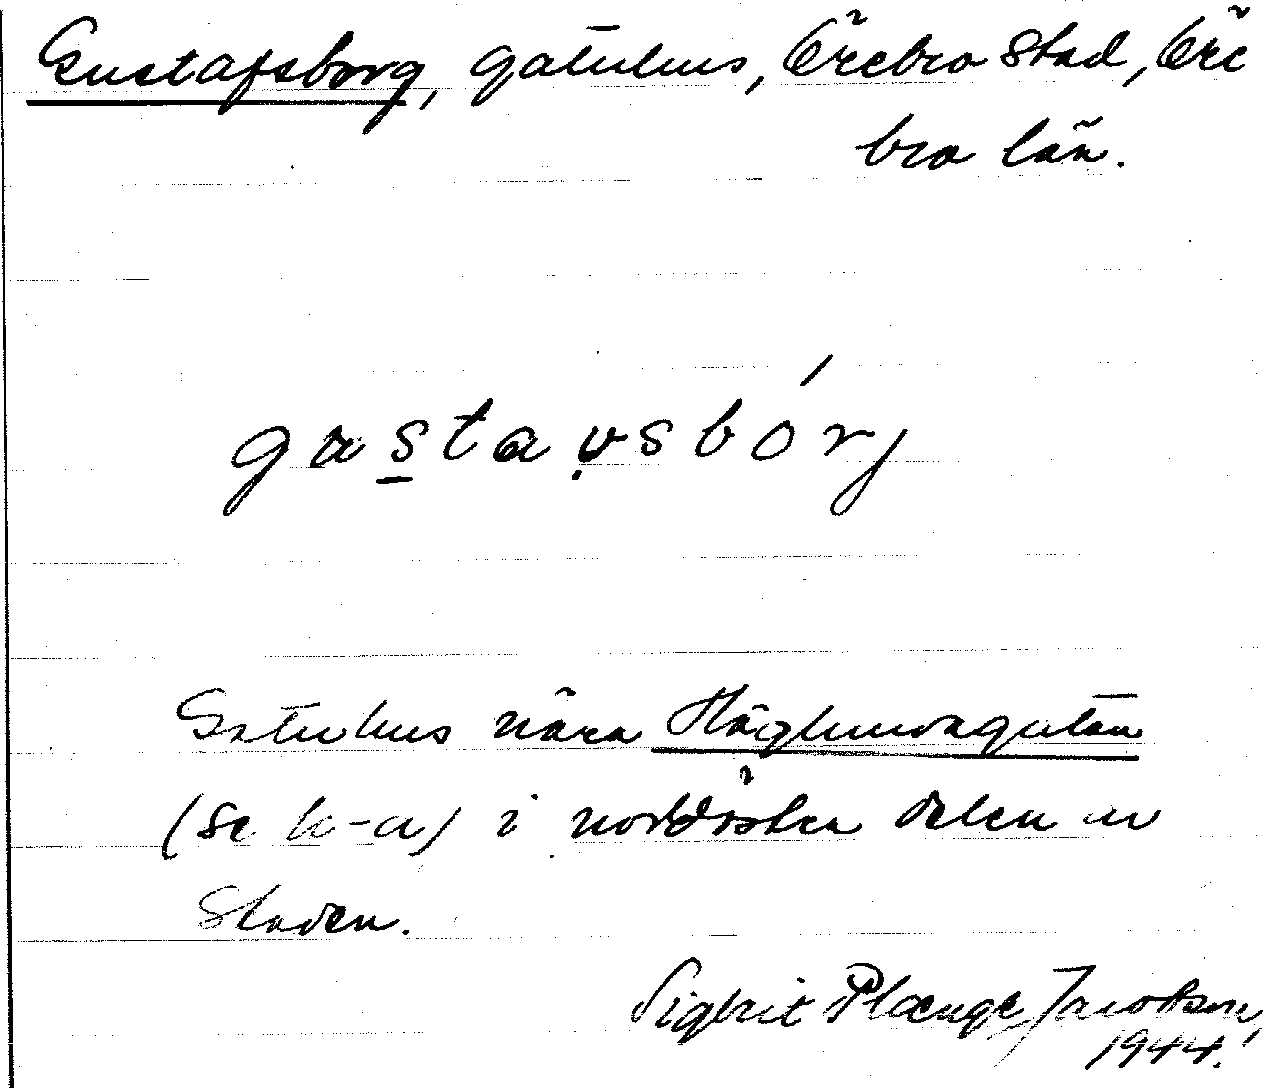 Gustafsborg, gatuhus, Örebro stad, Öre
bro län.
gustavsbórj
Gatuhus nära Höglundagatan
(se k-a) i nordöstra delen av
Staden.
Sigbrit Plænge Jacobson,
1944.